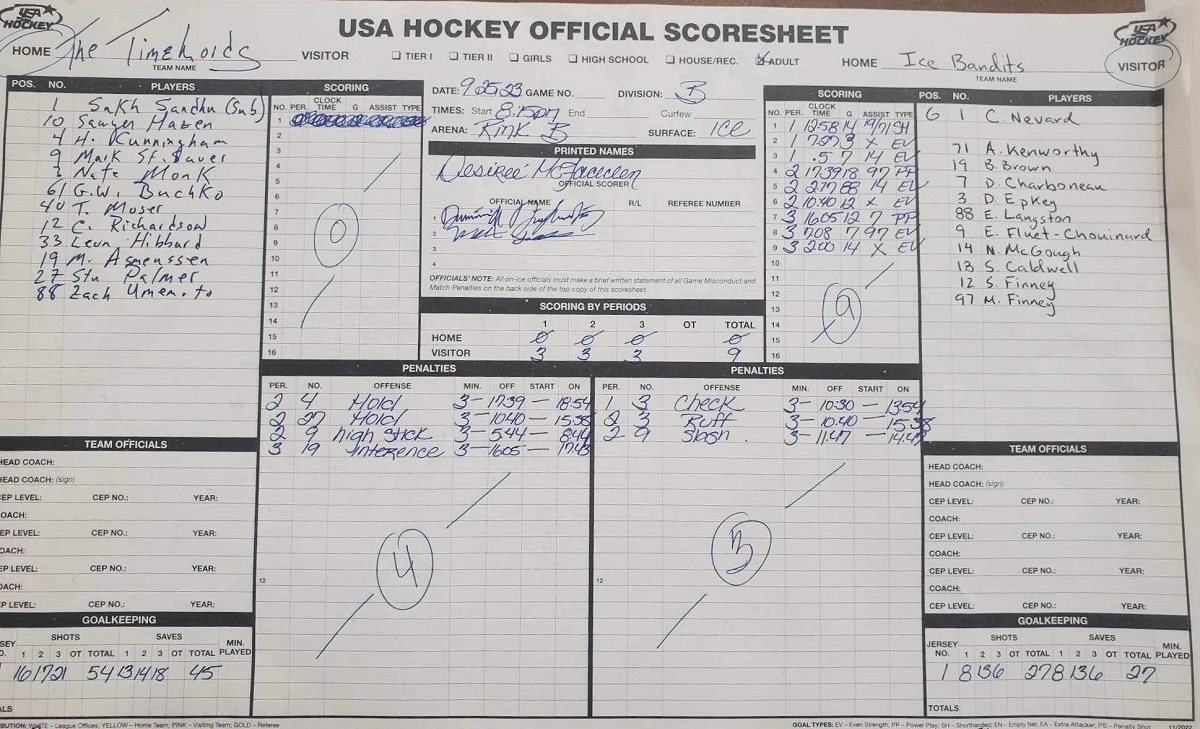 USA HOCKEY
USA HOCKEY OFFICIAL SCORESHEET
USA HOCKEY
HOME The Timehoids VISITOR
TEAM NAME
☐ TIER I ☐ TIER II ☐ GIRLS ☐ HIGH SCHOOL ☐ HOUSE/REC. ☒ ADULT
HOME Ice Bandits VISITOR
TEAM NAME
POS. NO. PLAYERS
1 Sukh Sandhu (Sub)
10 Sawyer Hazen
4 H. Cunningham
9 Mark St. Sauver
3 Nate Monk
61 G.W. Buchko
40 T. Moser
12 C. Richardson
33 Leun Hibbard
19 M. Asmussen
27 Stu Palmer
88 Zach
SCORING
NO. PER. CLOCK TIME G ASSIST TYPE
1
2
3
4
5
6
7
8
9
10
11
12
13
14
15
16
0
DATE: 9.25.23 GAME NO. DIVISION: B
TIMES: Start 8:15pm End Curfew
ARENA: Rink B SURFACE: ICE
PRINTED NAMES
Desireé
OFFICIAL SCORER
OFFICIAL NAME R/L REFEREE NUMBER
1
2
3
4
OFFICIALS' NOTE: All on-ice officials must make a brief written statement of all Game Misconduct and
Match Penalties on the back side of the top copy of this scoresheet.
SCORING BY PERIODS
1 2 3 OT TOTAL
HOME 0 0 0 0
VISITOR 3 3 3 9
SCORING
NO. PER. CLOCK TIME G ASSIST TYPE
1 1 12:58 14 19/71 SH
2 1 X EV
3 1 .5 7 14 EV
4 2 17:39 18 97 PP
5 2 2:77 88 14 EV
6 2 10:40 12 X EV
7 3 16:05 12 7 PP
8 3 7:08 7 97 EV
9 3 2:00 14 X EV
10
11
12
13
14
15
16
9
POS. NO. PLAYERS
G 1 C. Nevard
71 A. Kenworthy
19 B. Brown
7 D. Charboneau
3 D. Epkey
88 E. Langston
9 E. Fluet-Chouinard
14 N. McGough
13 S. Caldwell
12 S. Finney
97 M. Finney
PENALTIES
PER. NO. OFFENSE MIN. OFF START ON
2 4 Hold 3 - 17:39 - 18:54
2 27 Hold 3 - 10:40 - 15:38
2 9 high stick 3 - 5:44 - 8:44
3 19 Inference 3 - 16:05 - 17:43
12
4
PENALTIES
PER. NO. OFFENSE MIN. OFF START ON
1 3 Check 3 - 10:30 - 13:54
2 3 Ruff 3 - 10:40 - 15:38
2 9 Slash 3 - 11:47 - 14:47
12
3
TEAM OFFICIALS
HEAD COACH:
HEAD COACH: (sign)
CEP LEVEL: CEP NO.: YEAR:
COACH:
CEP LEVEL: CEP NO.: YEAR:
COACH:
CEP LEVEL: CEP NO.: YEAR:
COACH:
CEP LEVEL: CEP NO.: YEAR:
GOALKEEPING
SHOTS SAVES
JERSEY NO. 1 2 3 OT TOTAL 1 2 3 OT TOTAL MIN. PLAYED
16 17 21 54 13 14 18 45
TEAM OFFICIALS
HEAD COACH:
HEAD COACH: (sign)
CEP LEVEL: CEP NO.: YEAR:
COACH:
CEP LEVEL: CEP NO.: YEAR:
COACH:
CEP LEVEL: CEP NO.: YEAR:
COACH:
CEP LEVEL: CEP NO.: YEAR:
GOALKEEPING
SHOTS SAVES
JERSEY NO. 1 2 3 OT TOTAL 1 2 3 OT TOTAL MIN. PLAYED
1 8 13 6 27 8 13 6 27
TOTALS
BUTION: WHITE – League Offices; YELLOW – Home Team; PINK – Visiting Team; GOLD – Referee
GOAL TYPES: EV – Even Strength; PP – Power Play; SH – Shorthanded; EN – Empty Net; EA – Extra Attacker; PS – Penalty Shot 11/2022